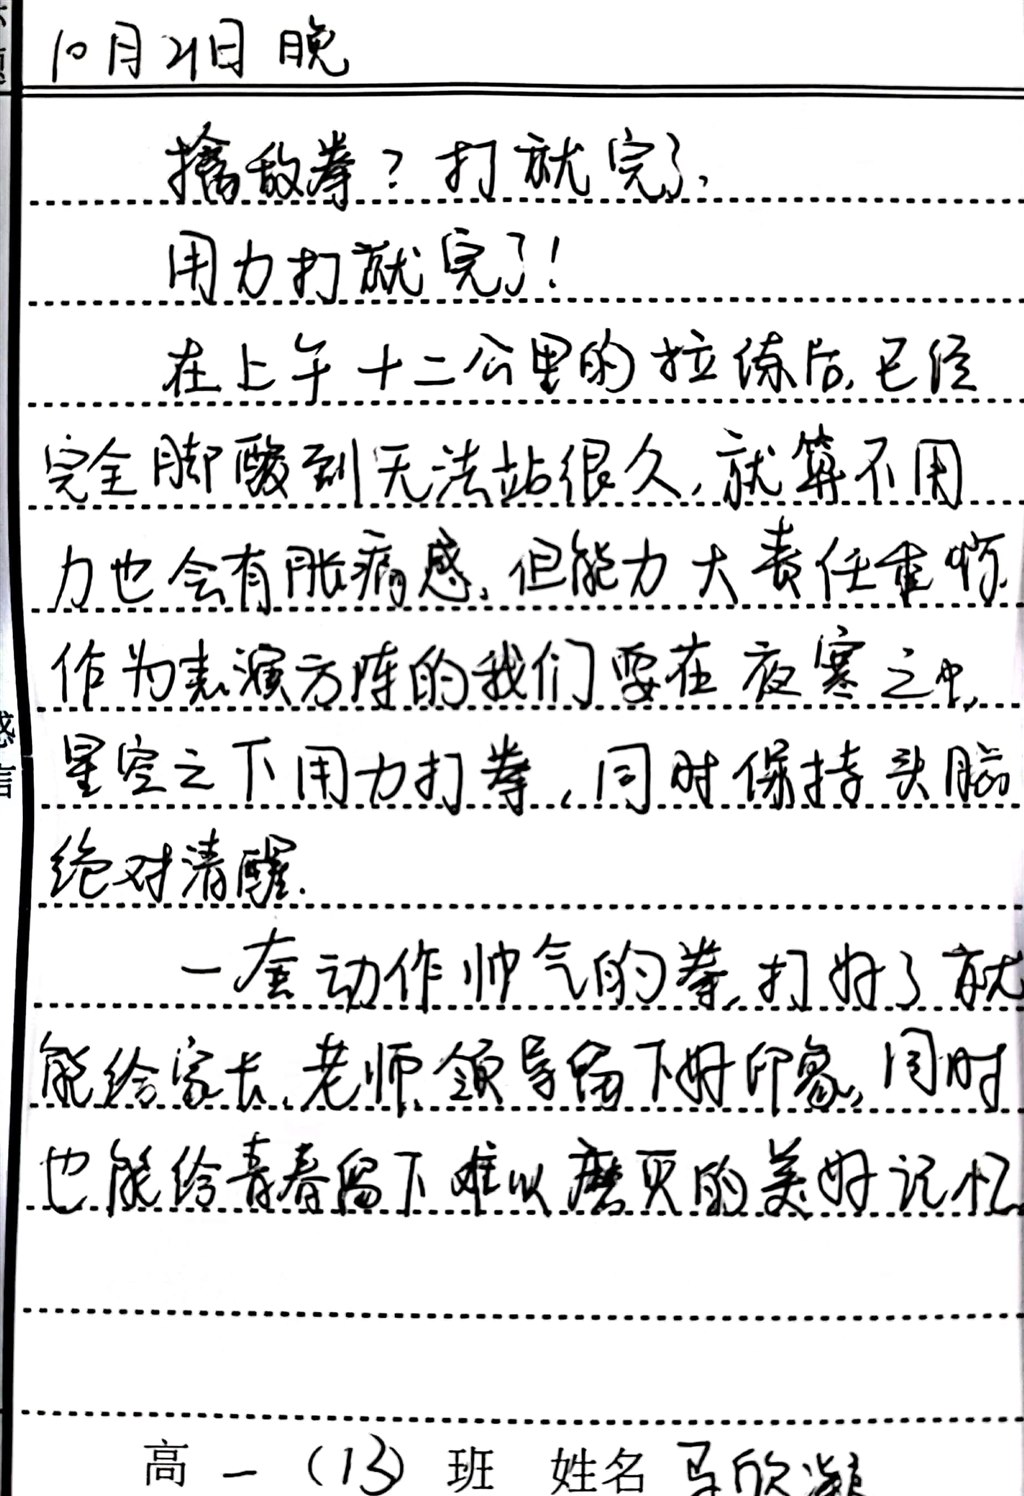 10月21日 晚
擒敌拳？打就完了，
用力打就完了！
在上午十二公里的拉练后，已经
完全脚酸到无法站很久，就算不用
力也会有胀痛感，但能力大责任重嘛，
作为表演方阵的我们要在夜寒之中，
星空之下用力打拳，同时保持头脑
绝对清醒.
一套动作帅气的拳，打好了就
能给家长、老师、领导留下好印象，同时
也能给青春留下难以磨灭的美好记忆
高一（13）班 姓名 马欣凝